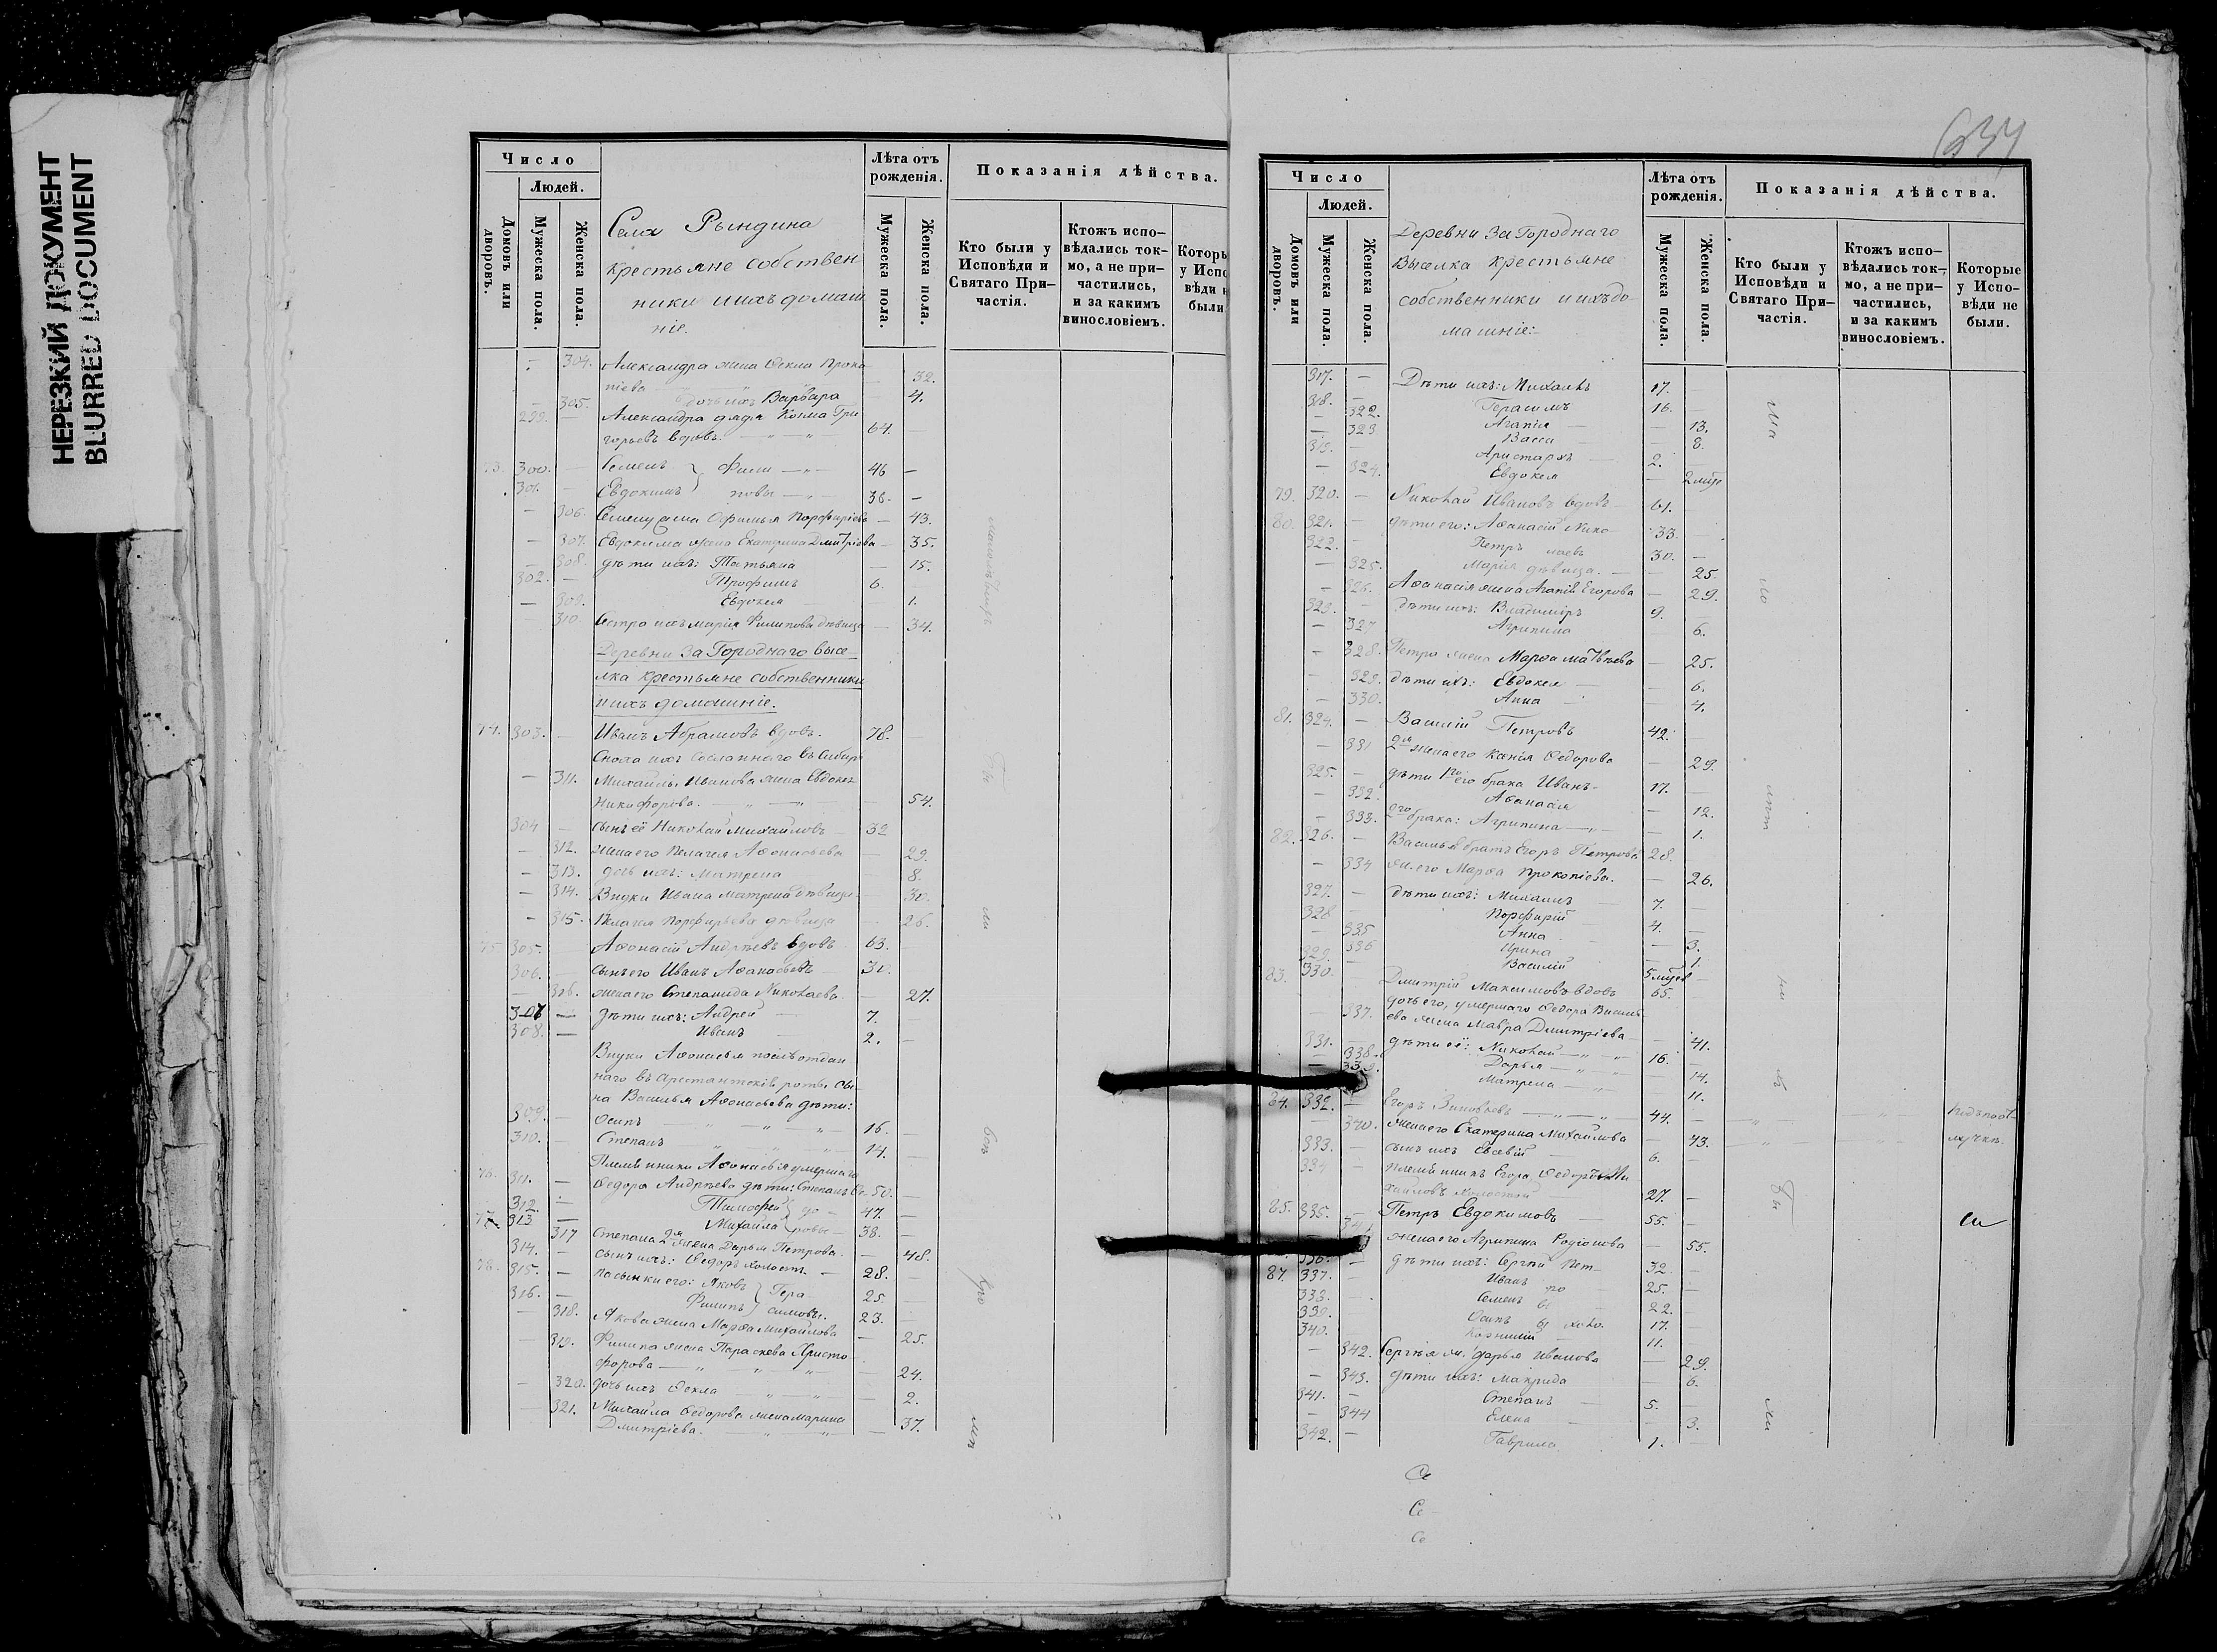 НЕРЕЗКИЙ ДОКУМЕНТ
BLURRED DOCUMENT
Число
Людей.
Домовъ или дворовъ.
Мужеска пола.
Женска пола.
Села Рындина
крестьяне собствен
ники и ихъ домаш
ніе.
Лѣта отъ рожденія.
Мужеска пола.
Женска пола.
Показанія дѣйства.
Кто были у Исповѣди и Святаго При-частія.
Ктожъ испо-вѣдались ток-мо, а не при-частились, и за какимъ винословіемъ.
304. Александра жена Ѳекла Проко
піева 32.
305. дочь ихъ Варвара 4.
299. Александра дядя Козма Гри
горьевъ вдовъ. 64.
73. 300. Семенъ Фили 46
301. Евдокимъ повы 38.
306. Семена жена Офимья Порфиріева 43.
307. Евдокима жена Екатерина Дмитріева 35.
308. дѣти ихъ: Татьяна 15.
302. Трофимъ 6.
309. Евдокея 1.
310. Сестра ихъ Марія Филипова дѣвица 34.
Деревни За Городнаго высе
лка крестьяне собственники
и ихъ домашніе.
74. 303. Иванъ Абрамовъ вдовъ. 78.
Сноха ихъ сосланнаго въ Сибирь
311. Михайлы Иванова жена Евдокея
Никифорова. 54.
304 сынъ её Николай Михайловъ 32
312. жена его Пелагея Аѳонасьева 29.
313. дочь ихъ: Матрена 8.
314. Внуки Ивана Матрена дѣвица 30.
315. Пелагея Порфирьева дѣвица 26.
75. 305. Аѳонасій Андрѣевъ вдовъ 63.
306. сынъ его Иванъ Аѳанасьевъ 30.
316. жена его Степанида Николаева 27.
307 дѣти ихъ: Андрей 7.
308. Иванъ 2.
Внуки Аѳонасья послѣ отдан
наго въ арестантскія роты сы
на Василья Аѳонасьева дѣти:
309. Осипъ 16.
310. Степанъ 14.
Племянники Аѳонасія умершаго
76. 311. Ѳедора Андрѣева дѣти: Степанъ Ѳе 50.
312. Тимофей до 47.
77. 313 Михайла ровы 38.
317 Степана 2я жена Дарья Петрова. 48.
314. сынъ ихъ: Ѳедоръ холост. 28.
78. 315. пасынки его: Яковъ Гера 25
316. Филипъ симовы. 23.
318. Якова жена Марѳа Михайлова 25.
319. Филипа жена Параскева Христо
форова 24.
320. дочь ихъ Ѳекла 2.
321. Михайла Ѳедорова жена Марина
Дмитріева. 37.
Число
Людей.
Домовъ или дворовъ.
Мужеска пола.
Женска пола.
Деревни За Городнаго
Выселка крестьяне
собственники и ихъ до
машніе:
Лѣта отъ рожденія.
Мужеска пола.
Женска пола.
Показанія дѣйства.
Кто были у Исповѣди и Святаго При-частія.
Ктожъ испо-вѣдались ток-мо, а не при-частились, и за какимъ винословіемъ.
Которые у Испо-вѣди не были.
317. Дѣти ихъ: Михаилъ 17.
318. Герасимъ 16.
322. Агапія 13.
323 Васса 8.
319. Аристархъ 2.
324. Евдокея
79. 320. Николай Ивановъ вдовъ 61.
80. 321. дѣти его: Аѳанасій Нико 33.
322. Петръ лаевъ 30.
325. Марія дѣвица. 25.
326. Аѳанасія жена Агапія Егорова 29.
323. дѣти ихъ: Владиміръ 9.
327 Агрипина 6.
328. Петра жена Марѳа Матвѣева 25.
329. дѣти ихъ: Евдокея 6.
330. Анна 4.
81. 324. Василій Петровъ 42.
331 2я жена его Ксенія Ѳедорова 29.
325. дѣти 1го его брака Иванъ 17.
332. Аѳанасія 12.
333. 2го брака: Агрипина 1.
82. 326. Василья братъ Егоръ Петровъ 28.
334 ж. его Марѳа Прокопіева. 26.
327. дѣти ихъ: Михаилъ 7.
328 Порфирій 4.
335 Анна 3.
336 Ирина 1.
329. Василій
83. 330. Дмитрій Максимовъ вдовъ 65.
дочь его, умершаго Ѳедора Василь
337. ева жена Мавра Дмитріева 41.
331. дѣти её: Николай 16.
338. Дарья 14.
339. Матрена 11.
84. 332. Егоръ Зиновьевъ 44.
340. жена его Екатерина Михайлова 43.
333. сынъ ихъ Евсевій 6.
334 племянникъ Егора Ѳедоръ Ми
хайловъ холостой 27.
85. 335. Петръ Евдокимовъ 55.
341 жена его Агрипина Родіонова 55.
336. дѣти ихъ: Сергѣй Пет 32.
87. 337. Иванъ ро 25.
338. Семенъ 22.
339. Осипъ 17.
340. Корнилій 11.
342. Сергѣя ж. Дарья Иванова 29.
343. дѣти ихъ: Макрида 6.
341. Степанъ 5.
344 Елена 3.
342. Гаврила 1.